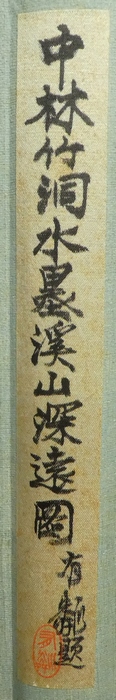 中林竹洞水墨溪山深遠圖
有龍題